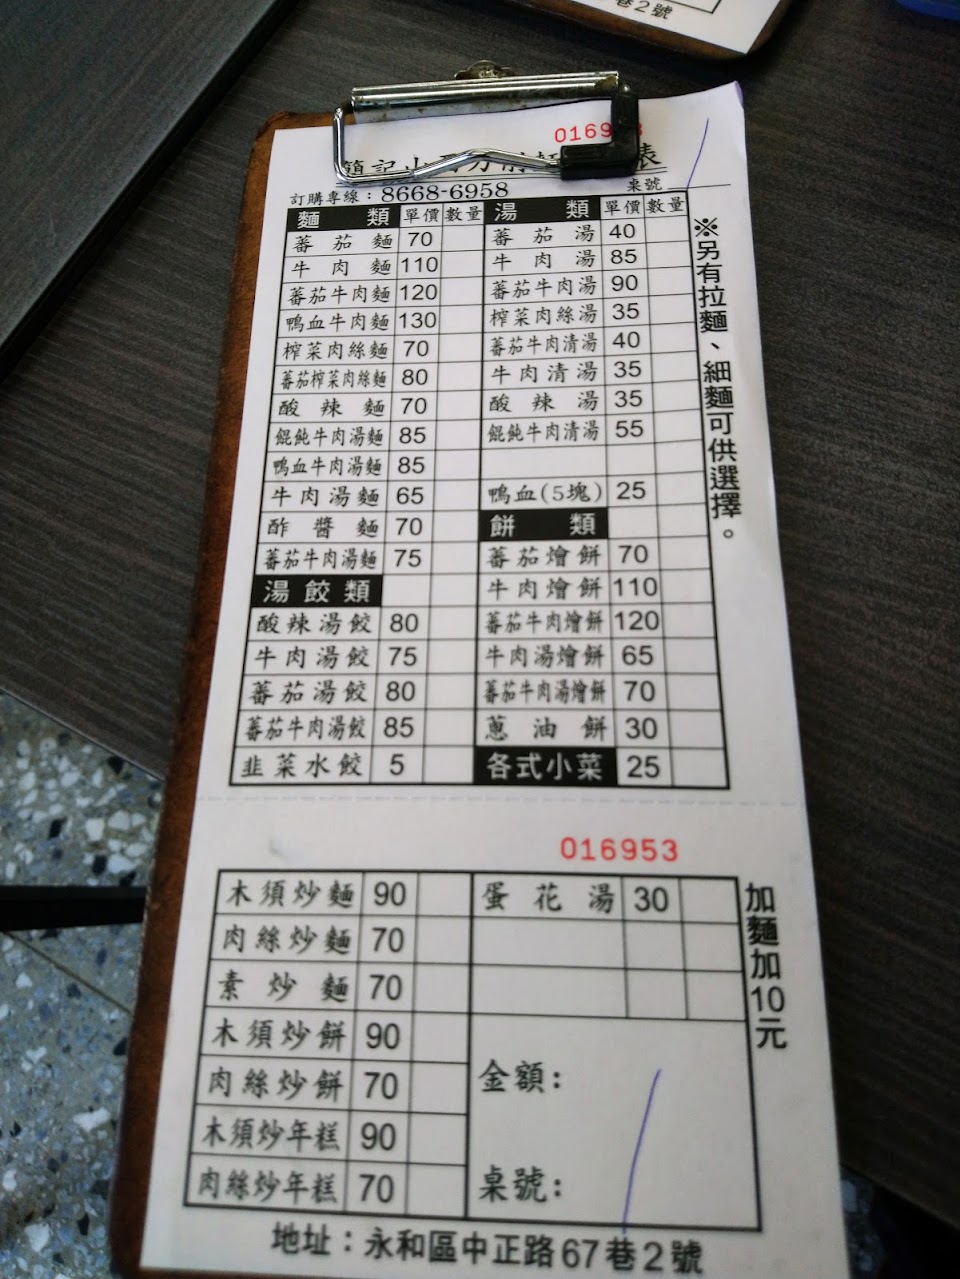 巷2號
簡記山
訂購專線：8668-6958
桌號
麵類 單價 數量 湯類 單價 數量
蕃茄麵 70 蕃茄湯 40
牛肉麵 110 牛肉湯 85
蕃茄牛肉麵 120 蕃茄牛肉湯 90
鴨血牛肉麵 130 榨菜肉絲湯 35
榨菜肉絲麵 70 蕃茄牛肉清湯 40
蕃茄榨菜肉絲麵 80 牛肉清湯 35
酸辣麵 70 酸辣湯 35
餛飩牛肉湯麵 85 餛飩牛肉清湯 55
鴨血牛肉湯麵 85
牛肉湯麵 65 鴨血(5塊) 25
酢醬麵 70 餅類
蕃茄牛肉湯麵 75 蕃茄燴餅 70
湯餃類 牛肉燴餅 110
酸辣湯餃 80 蕃茄牛肉燴餅 120
牛肉湯餃 75 牛肉湯燴餅 65
蕃茄湯餃 80 蕃茄牛肉湯燴餅 70
蕃茄牛肉湯餃 85 蔥油餅 30
韭菜水餃 5 各式小菜 25
※另有拉麵、細麵可供選擇。
016953
木須炒麵 90 蛋花湯 30
肉絲炒麵 70
素炒麵 70
木須炒餅 90
肉絲炒餅 70
木須炒年糕 90
肉絲炒年糕 70
金額：
桌號：
加麵加10元
地址：永和區中正路67巷2號